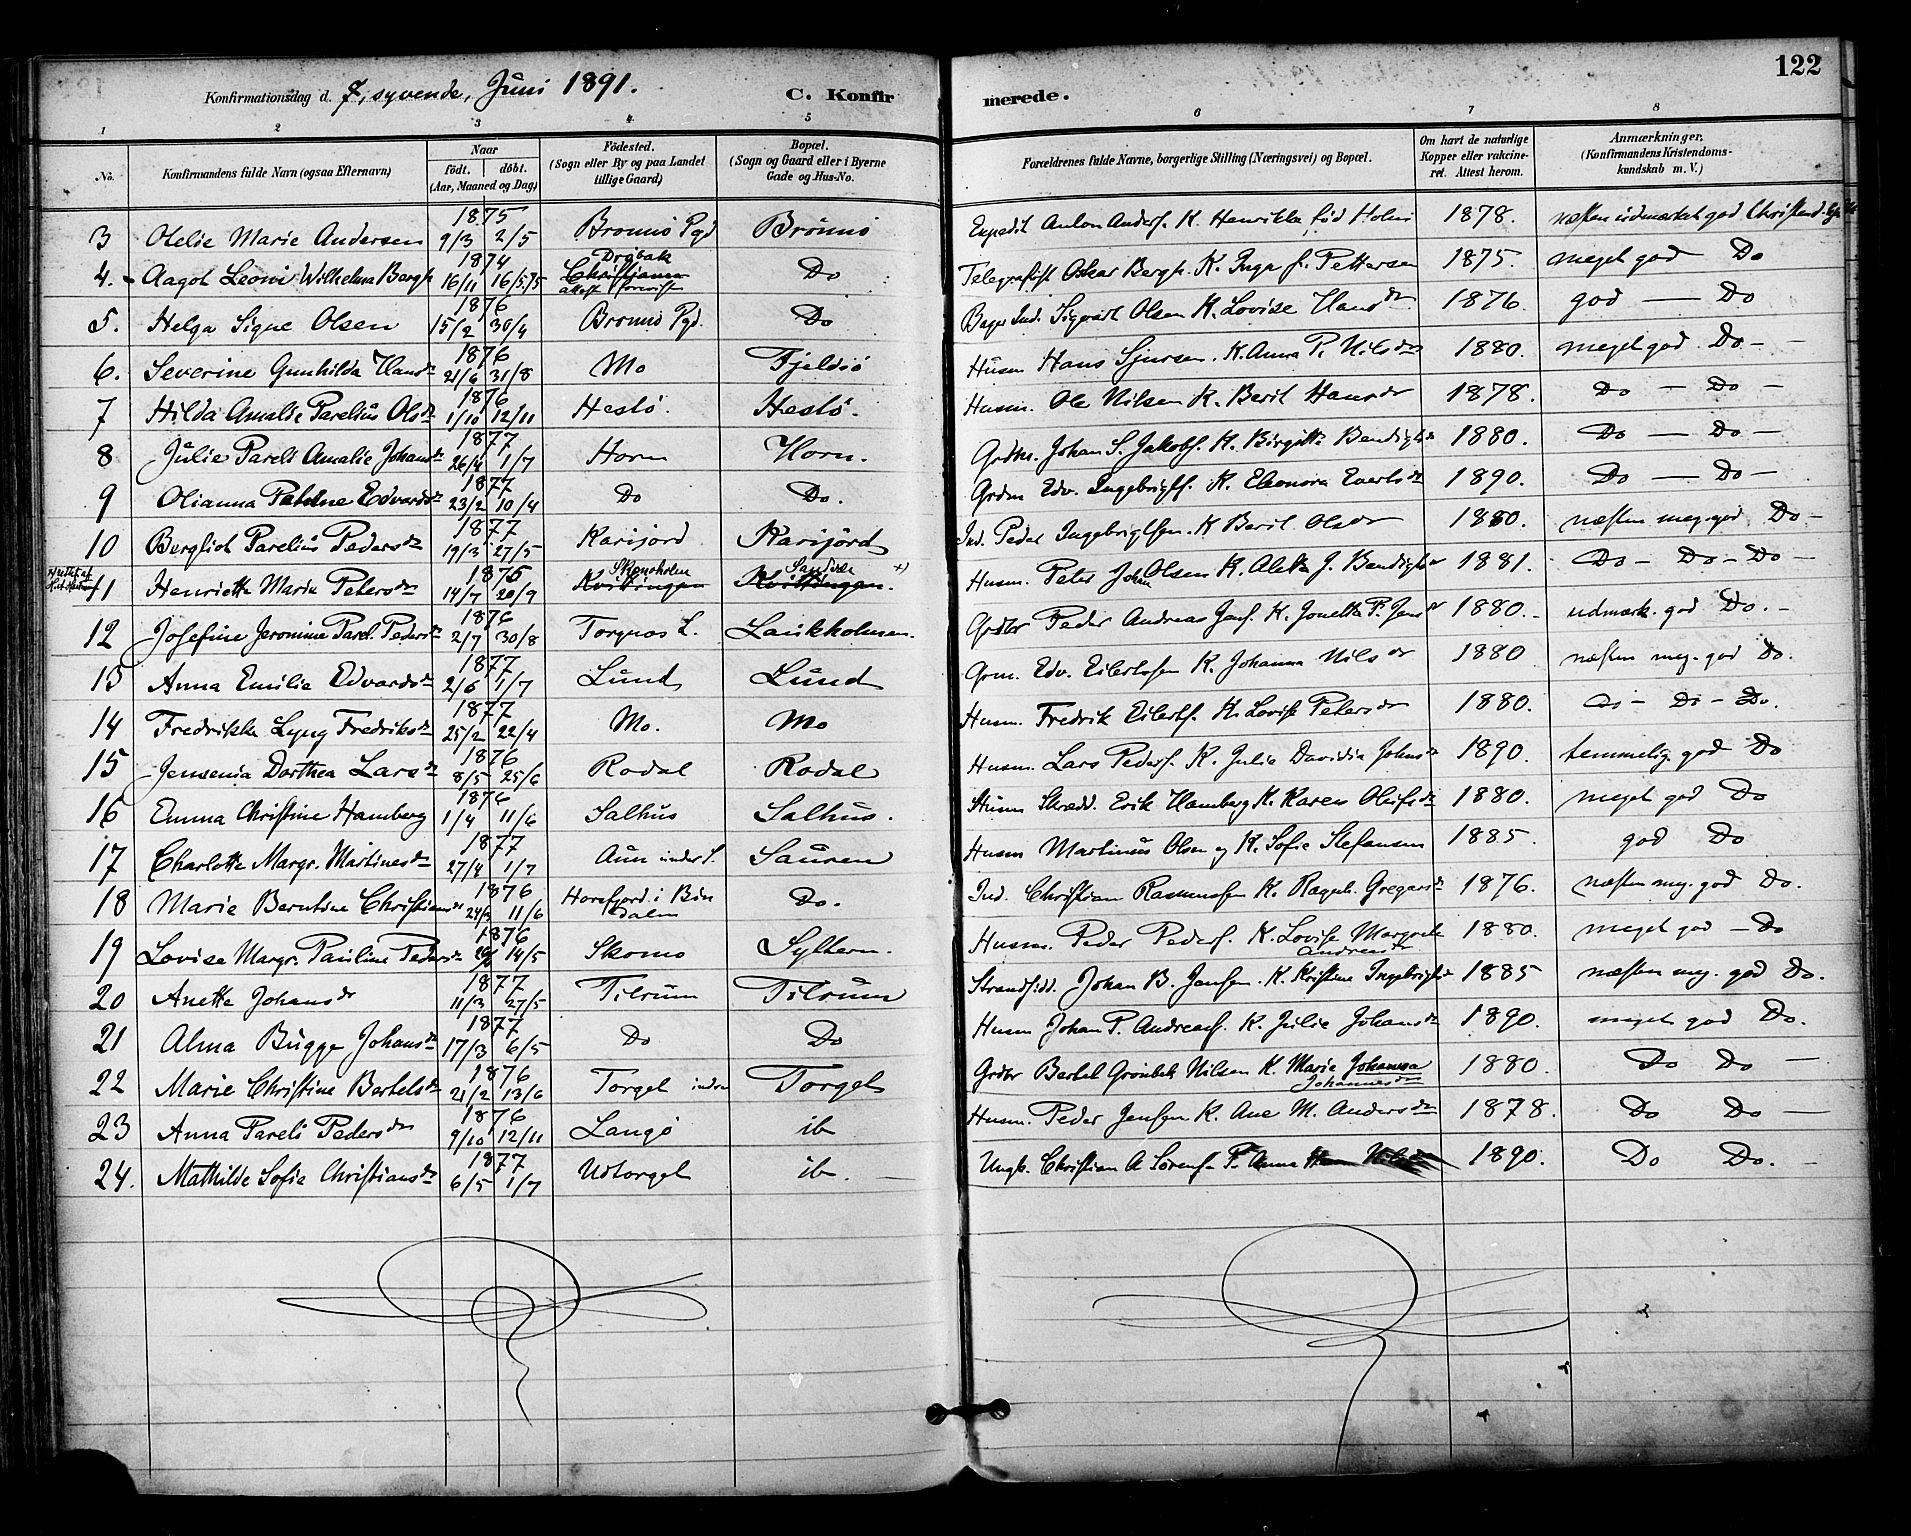 122
Konfirmationsdag d. 7, syvende, Juni 1891. C. Konfirmerede.
1 2 3 4 5 6 7 8
No. Konfirmandens fulde Navn (ogsaa Efternavn) Naar födt. döbt. (Aar, Maaned og Dag) Födested. (Sogn eller By og paa Landet tillige Gaard) Bopæl. (Sogn og Gaard eller i Byerne Gade og Hus-No. Forældrenes fulde Navne, borgerlige Stilling (Næringsvei) og Bopæl. Om havt de naturlige Kopper eller vakcineret. Attest herom. Anmærkninger, (Konfirmandens Kristendomskundskab m. V.)
3 Otelie Marie Andersen 1875 9/3 2/5 Brønnø Pgd Brønnø Expedit Anton Anders. K. Henrikke fød Holm 1878. næsten udmærket god Christend.
4. Aagot Leonie Wilhelmine Bergh 1874 16/11 16/5 75 Drøbak Christiania Do Telegrafist Oskar Bergh. K. Inga f. Pettersen 1875. meget god Do
5. Helga Signe Olsen 1876 15/2 30/4 Brønnø Pgd. Do Bager Ind. Sigvart Olsen K. Lovise Hansdr 1876. god — Do
6. Severine Gunhilda Hansdr 1876 21/6 31/8 Mo Fjeldsø Husm Hans Sjursen. K. Anna P. Nilsdr 1880. meget god. Do -
7 Hilda Amalie Parelius Olsdr 1876 1/10 12/11 Hestø. Hestø. Husm. Ole Nilsen K. Berit Hansdr 1878. Do — Do —
8 Julie Pareli Amalie Johansdr 1877 26/4 1/7 Horn Horn. Grdm. Johan S. Jakobs. K. Birgitte Bendigtsdr 1880. Do — Do —
9 Olianna Edvardsdr 1877 23/2 10/4 Do Do. Grdm Edv. Ingebrigts. K. Eleonora Evertsdr 1890. Do — Do —
10 Bergliot Parelius Pedersdr 1877 19/3 27/5 Karijord Karijord Ind. Peder Ingebrigtsen. K Berit Olsdr 1880. næsten meg. god Do -
11 Henriette Marie Petersdr 1876 14/7 20/9 Skomoholm Kvitingen Sandene Kvittingen. +) Husm. Peter Johan Olsen K. Aleta J. Bendigtsdr 1881. Do - Do - Do -
12 Josefine Jeronime Parel. Pedersdr 1876 2/7 30/8 Torgnes L. Laukholmen. Grdbr Peder Andreas Jens. K. Jonetta P. Jensdr 1880. udmærk. god Do. -
13 Anna Emilie Edvardsdr 1877 2/6 1/7 Lund Lund Grm. Edv. Eilertsen K. Johanna Nilsdr 1880 næsten meg. god Do.
14 Fredrikke Lyng Fredriksdr 1877 25/2 22/4 Mo. Mo Husm. Fredrik Eilerts. K. Lovise Petersdr 1880. Do - Do - Do.
15 Jensenia Dorthea Larsdr 1876 8/5 25/6 Rodal Rodal Husm. Lars Peders. K. Julie Davidia Johnsdr 1890. temmelig god Do
16 Emma Christine Hamberg 1876 1/4 11/6 Salhus Salhus. Husm Skrædd. Erik Hamberg K. Karen Olufsdr 1880. meget god Do
17 Charlotte Margr. Martinesdr 1877 27/4 1/7 Aun under S. Sauren Husm Martinus Olsen og K. Sofie Stefansen 1885. god Do
18 Marie Berntine Christiansdr 1876 24/3 11/6 Horsfjord i Bindalen Do. Ind. Christian Rasmussen K. Ragnh. Gregersdr 1876. næsten meg. god Do.
19 Lovise Margr. Pauline Pedersdr 1876 14/5 Skomo Syltern. Husm. Peder Peders. K. Lovise Margrete Andreasdr 1880. meget god — Do
20 Anetta Johansdr 1877 11/3 27/5 Tilrum Tilrum Strandsidd. Johan B. Jensen. K. Kristine Ingebrigtsdr 1885 næsten meg. god Do.
21 Alma Bugge Johansdr 1877 17/3 6/5 Do Do Husm Johan P. Andreas. K. Julie Johansdr 1890. meget god Do.
22 Marie Christine Bertelsdr 1876 21/2 13/6 Torget indre Torget Grdbr Bertel Grønbek Nilsen K. Marie Johanna Johannesdr 1880. Do Do —
23 Anna Pareli Pedersdr 1876 9/10 12/11 Langø ib Husm. Peder Jensen K. Ane M. Andersdr 1878. Do Do —
24. Mathilde Sofie Christiansdr 1877 6/5 1/7 Udtorget ib. — Ungk. Christian A Sørens. P. Anna 1890. Do Do. —